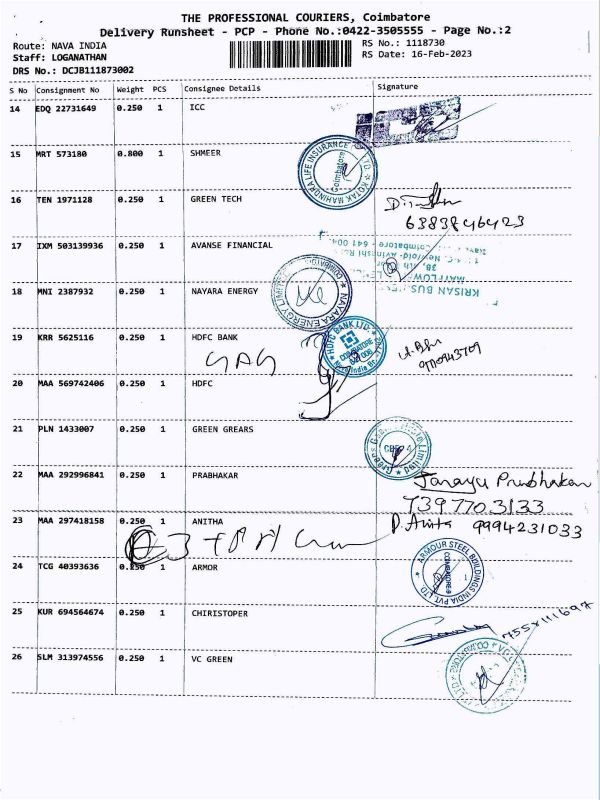 THE PROFESSIONAL COURIERS, Coimbatore
Delivery Runsheet - PCP - Phone No.:0422-3505555 - Page No.:2
Route: NAVA INDIA RS No.: 1118730
Staff: LOGANATHAN RS Date: 16-Feb-2023
DRS No.: DCJB111873002
S No Consignment No Weight PCS Consignee Details Signature
14 EDQ 22731649 0.250 1 ICC
15 MRT 573180 0.800 1 SHMEER
KOTAK MAHINDRA LIFE INSURANCE
Coimbatore
16 TEN 1971128 0.250 1 GREEN TECH
6383846423
17 IXM 503139936 0.250 1 AVANSE FINANCIAL
18 MNI 2387932 0.250 1 NAYARA ENERGY
NAYARA ENERGY LIMITED
19 KRR 5625116 0.250 1 HDFC BANK
HDFC BANK LTD.
COIMBATORE
20 MAA 569742406 0.250 1 HDFC
21 PLN 1433007 0.250 1 GREEN GREARS
22 MAA 292996841 0.250 1 PRABHAKAR
Prabhakar
7397703133
23 MAA 297418158 0.250 1 ANITHA
D. Anita 9994231033
24 TCG 40393636 0.250 1 ARMOR
ARMOUR STEEL BUILDINGS INDIA PVT. LTD.
COIMBATORE
25 KUR 694564674 0.250 1 CHIRISTOPER
26 SLM 313974556 0.250 1 VC GREEN